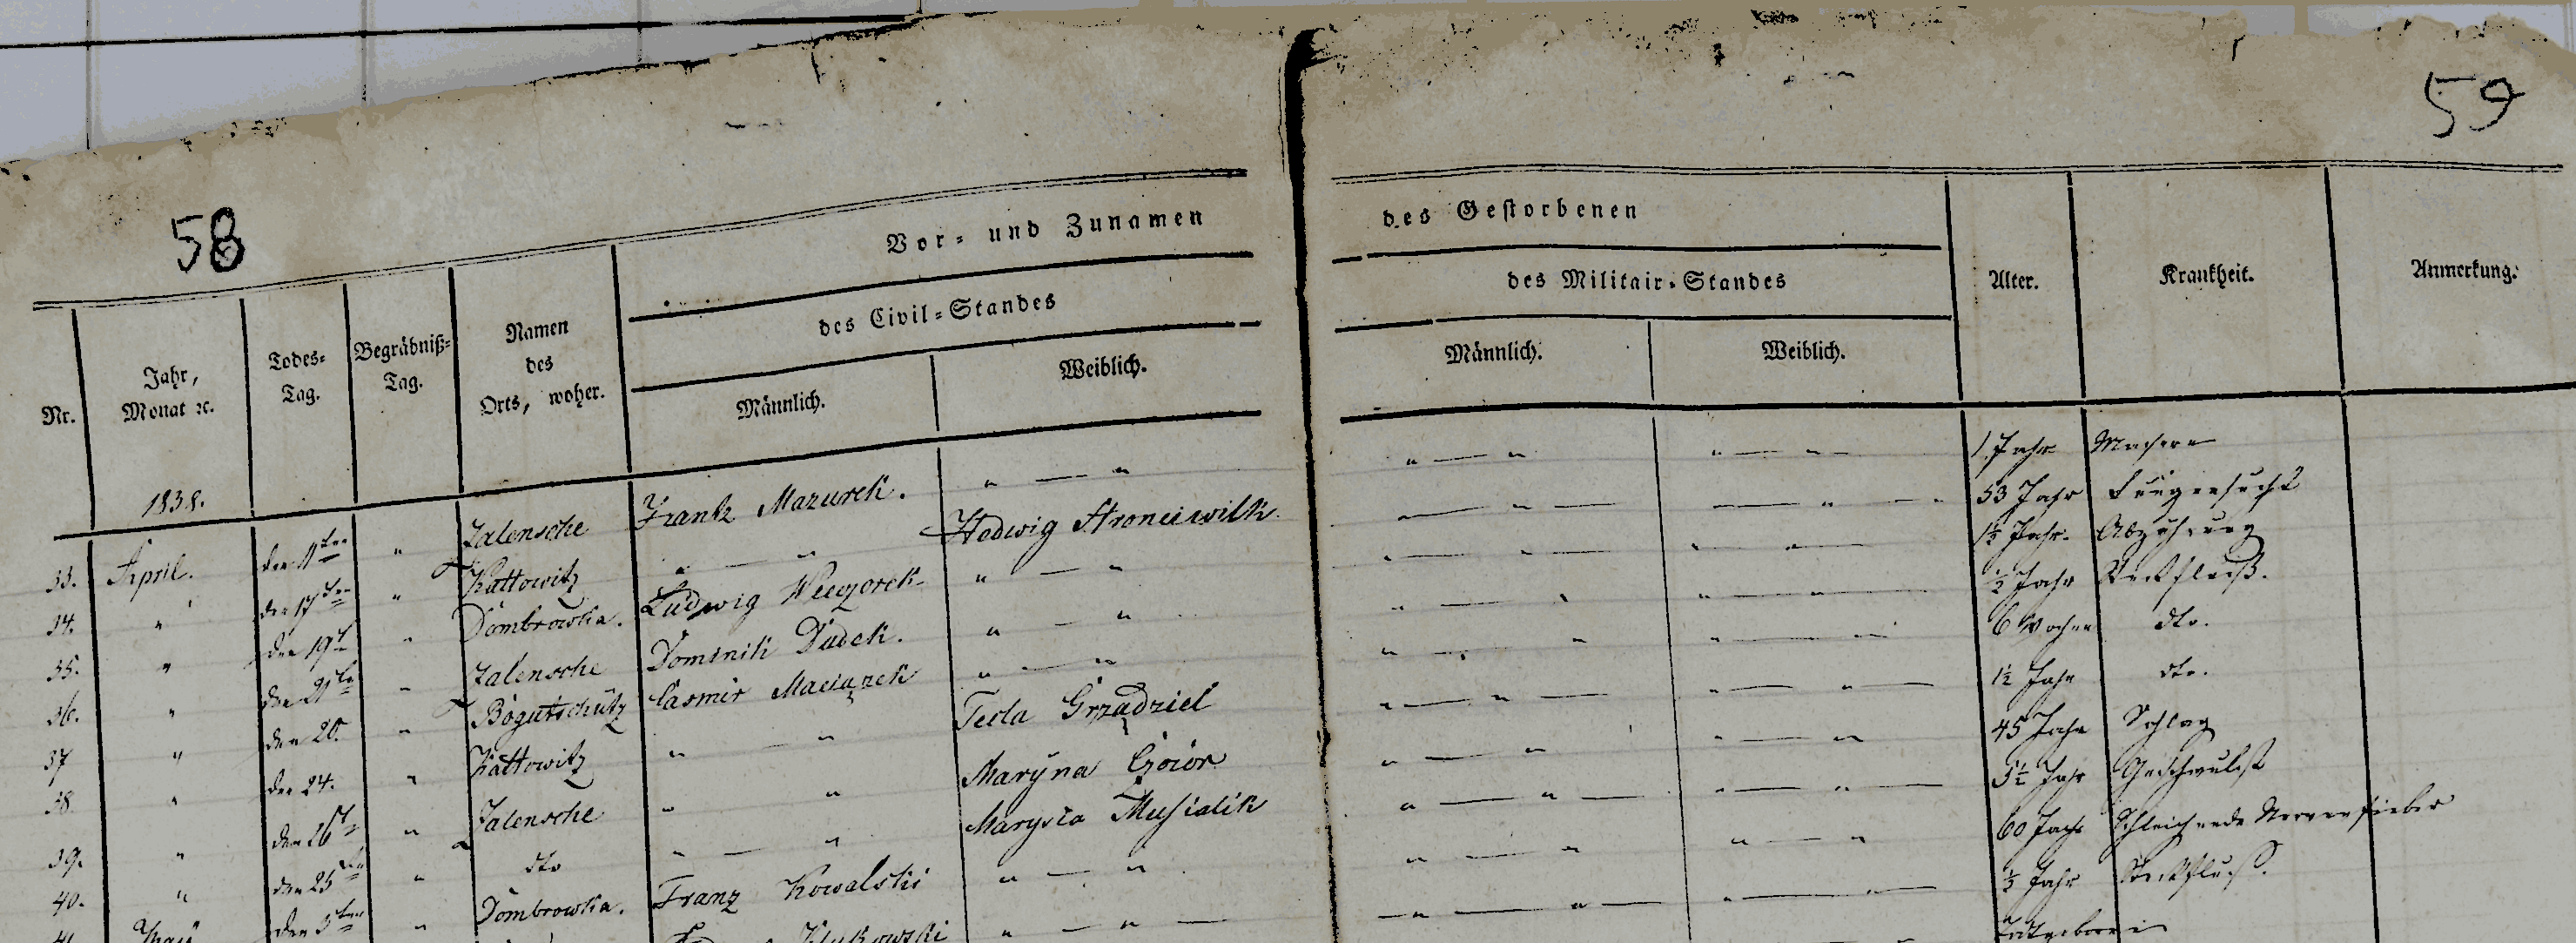 58
59
Vor- und Zunamen
des Gestorbenen
des Civil-Standes
des Militair-Standes
Nr.
Jahr,
Monat ꝛc.
Todes-
Tag.
Begräbniß-
Tag.
Namen
des
Orts, woher.
Männlich.
Weiblich.
Männlich.
Weiblich.
Alter.
Krankheit.
Anmerkung.
1838.
33. April. den 11ten " Zalensche Frank Mazurek. " — " " — " " — " 1 Jahr Masern
34. " den 17ten " Kattowitz " — " Hedwig 53 Jahr
35. " den 19t " Dombrowka. Ludwig Wieczorek " — " 1½ Jahr. Abzehrung
36. " den 21te " Zalensche Dominik Dudek. " — " ½ Jahr Stickfluß.
37 " den 20. " Bogutschütz Casmir " — " 6 Wochen dto.
38. " den 24. " Kattowitz " — " Tecla Grządziel 1½ Jahr dto.
39. " den 26t " Zalensche " — " Maryna 45 Jahr Schlag
40. " den 25te " dto " — " Marysia Musialik 5½ Jahr Geschwulst
41. May den 3ten " Dombrowka. Franz Kowalski " — " 60 Jahr Schleichende Nervenfieber
½ Jahr Stickfluß.